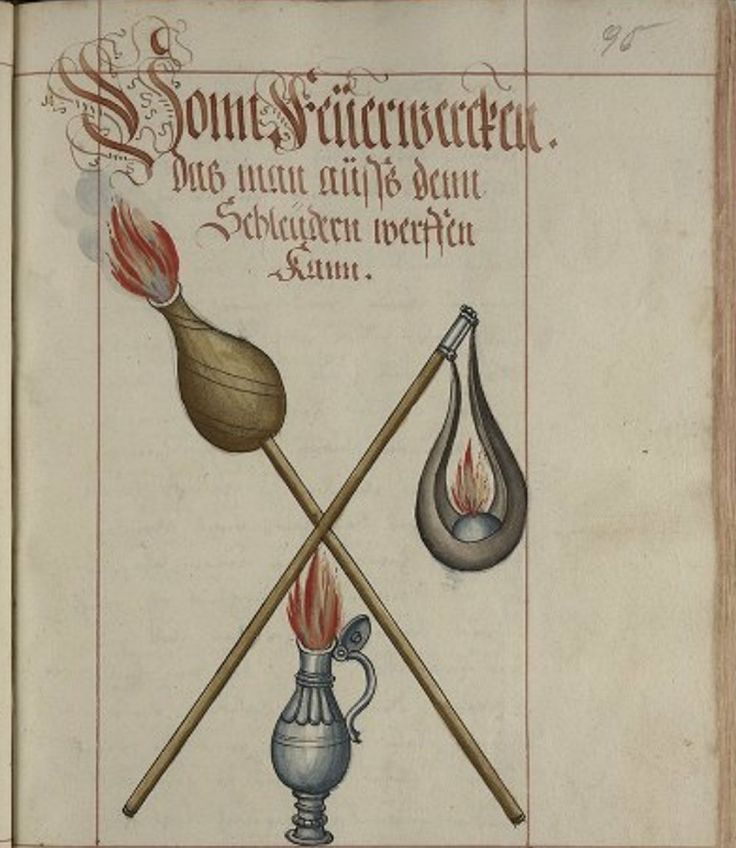 95
Vonn Feüerwercken.
das man aüsß denn
Schleüdern werffen
Kann.